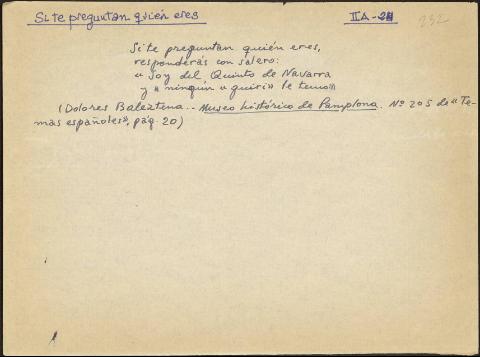 Si te preguntan quién eres IIA-24 232
Si te preguntan quién eres,
responderás con salero:
«Soy del Quinto de Navarra
y a ningún «guiri» le temo»
(Dolores Baleztena.- Museo histórico de Pamplona. Nº 205 de «Te-
mas españoles», pág. 20)